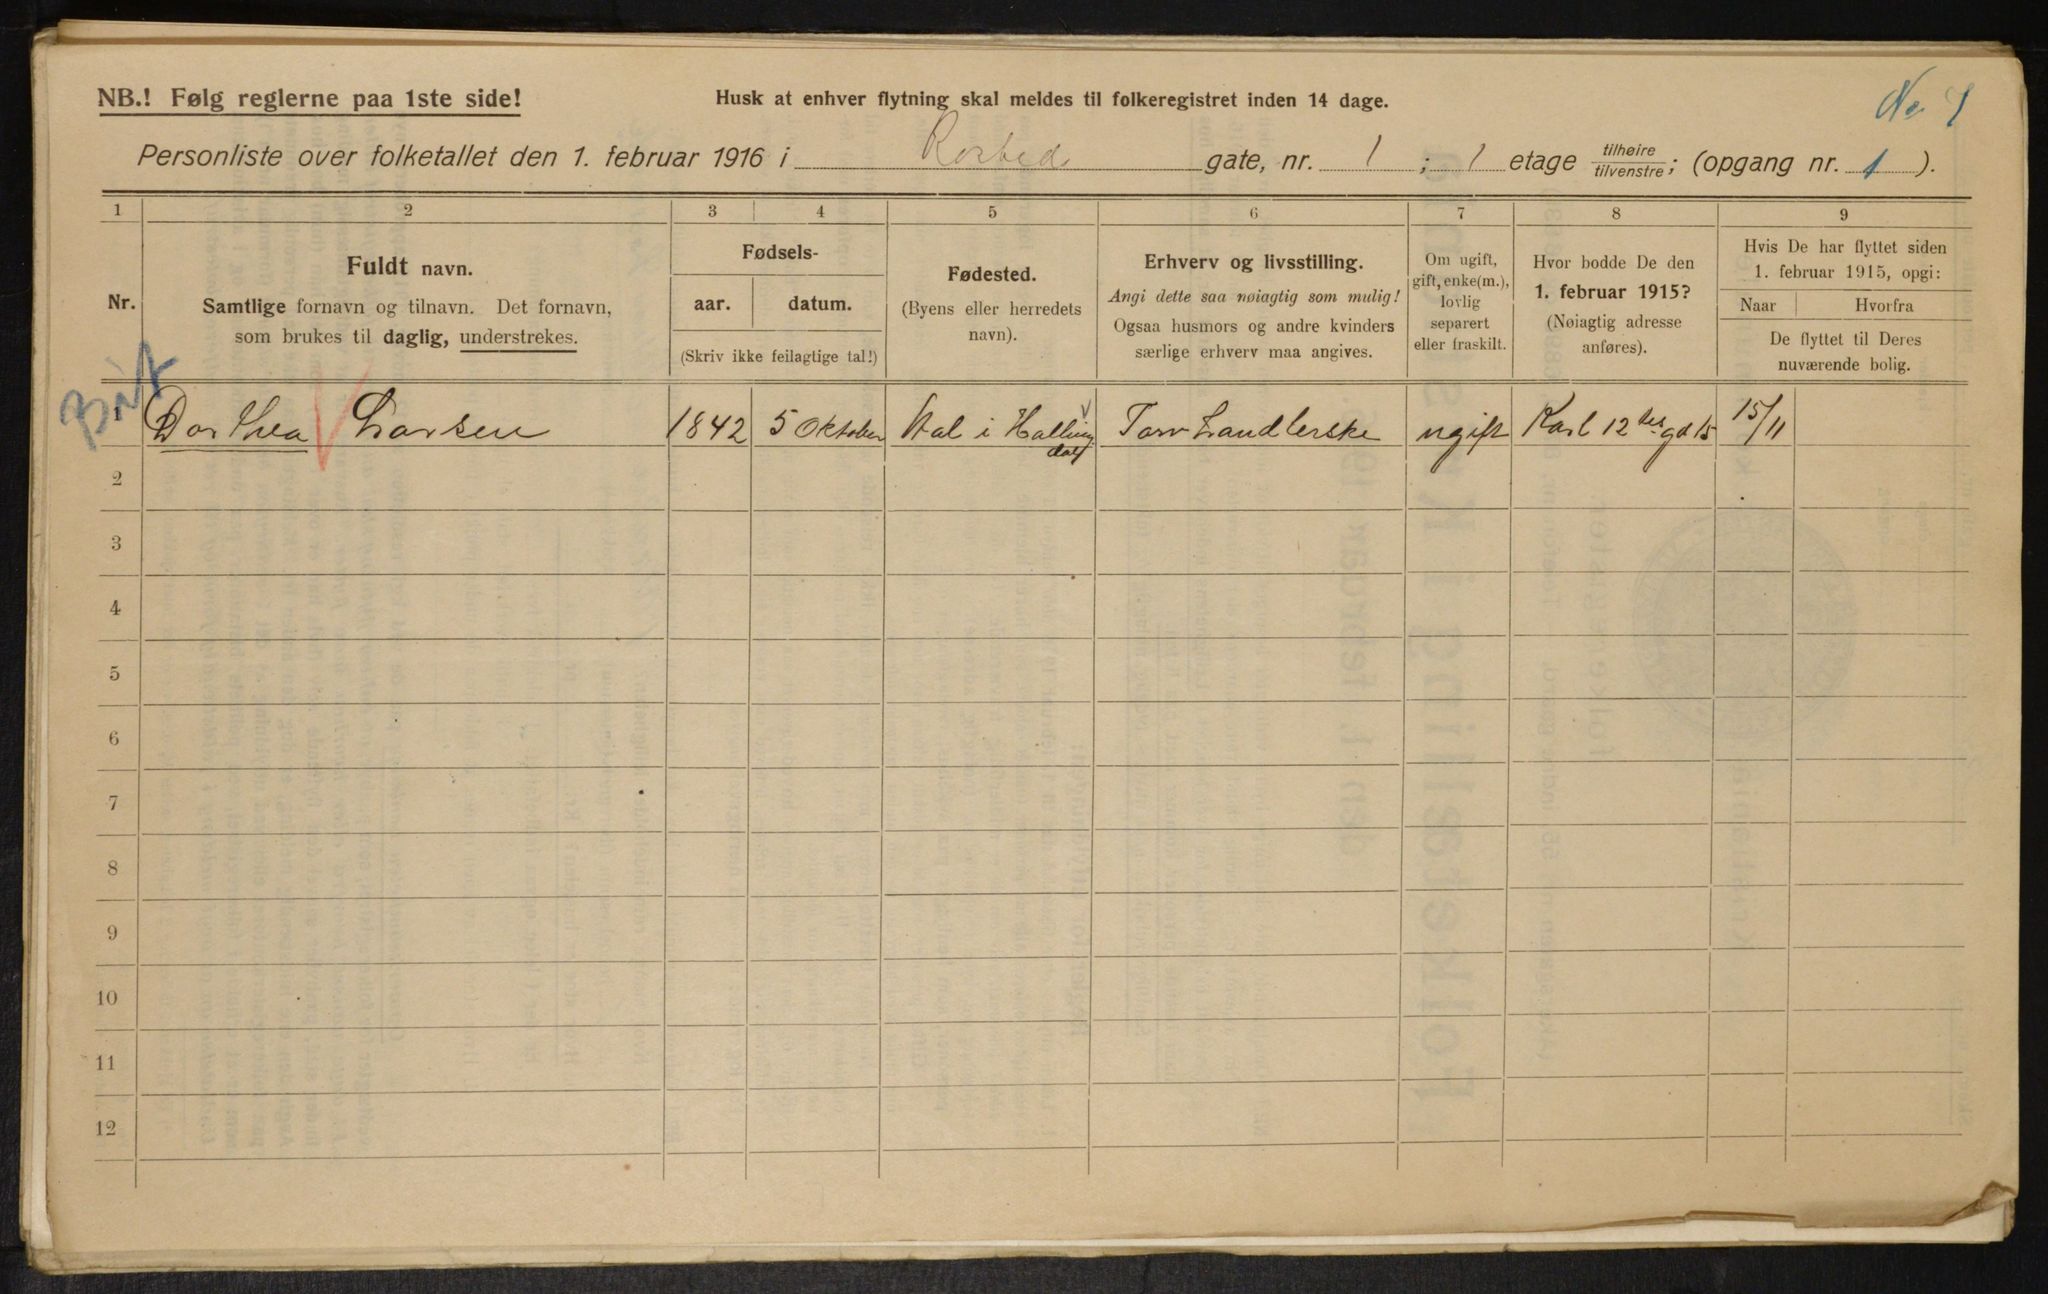 NB.! Følg reglerne paa 1ste side!
Husk at enhver flytning skal meldes til folkeregistret inden 14 dage.
No 1
Personliste over folketallet den 1. februar 1916 i Rosteds gate, nr. 1 ; 1 etage tilhøire/tilvenstre; (opgang nr. 1 ).
1 2 3 4 5 6 7 8 9
Nr.
Fuldt navn.
Samtlige fornavn og tilnavn. Det fornavn,
som brukes til daglig, understrekes.
Fødsels-
aar. datum.
(Skriv ikke feilagtige tal!)
Fødested.
(Byens eller herredets
navn).
Erhverv og livsstilling.
Angi dette saa nøiagtig som mulig!
Ogsaa husmors og andre kvinders
særlige erhverv maa angives.
Om ugift,
gift, enke(m.),
lovlig
separert
eller fraskilt.
Hvor bodde De den
1. februar 1915?
(Nøiagtig adresse
anføres).
Hvis De har flyttet siden
1. februar 1915, opgi:
Naar Hvorfra
De flyttet til Deres
nuværende bolig.
1 Dorthea Larsen 1842 5 Oktober Aal i Halling Torv Handlerske ugift Karl 12tes gd 15 15/11
dal
2
3
4
5
6
7
8
9
10
11
12